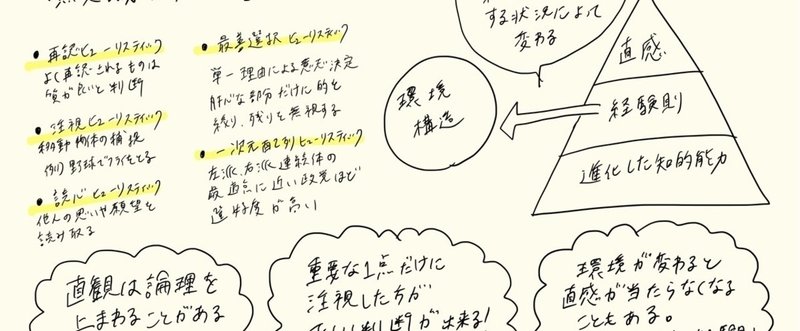 する状況によって
変わる
• 再認ヒューリスティック
よく再認されるものは
質が良いと判断
• 注視ヒューリスティック
移動物体の捕捉
例) 野球でフライをとる
• 読心ヒューリスティック
他人の思いや願望を
読み取る
• 最善選択ヒューリスティック
単一理由による意思決定
肝心な部分だけに的を
絞り、残りを無視する
• 一次元配列ヒューリスティック
左派、右派連続体の
最適点に近い政党ほど
選好度が高い
環境
構造
直感
経験則
進化した知的能力
直観は論理を
上まわることがある
重要な1点だけに
注視した方が
正しい判断が出来る!
環境が変わると
直感が当たらなくなる
こともある。